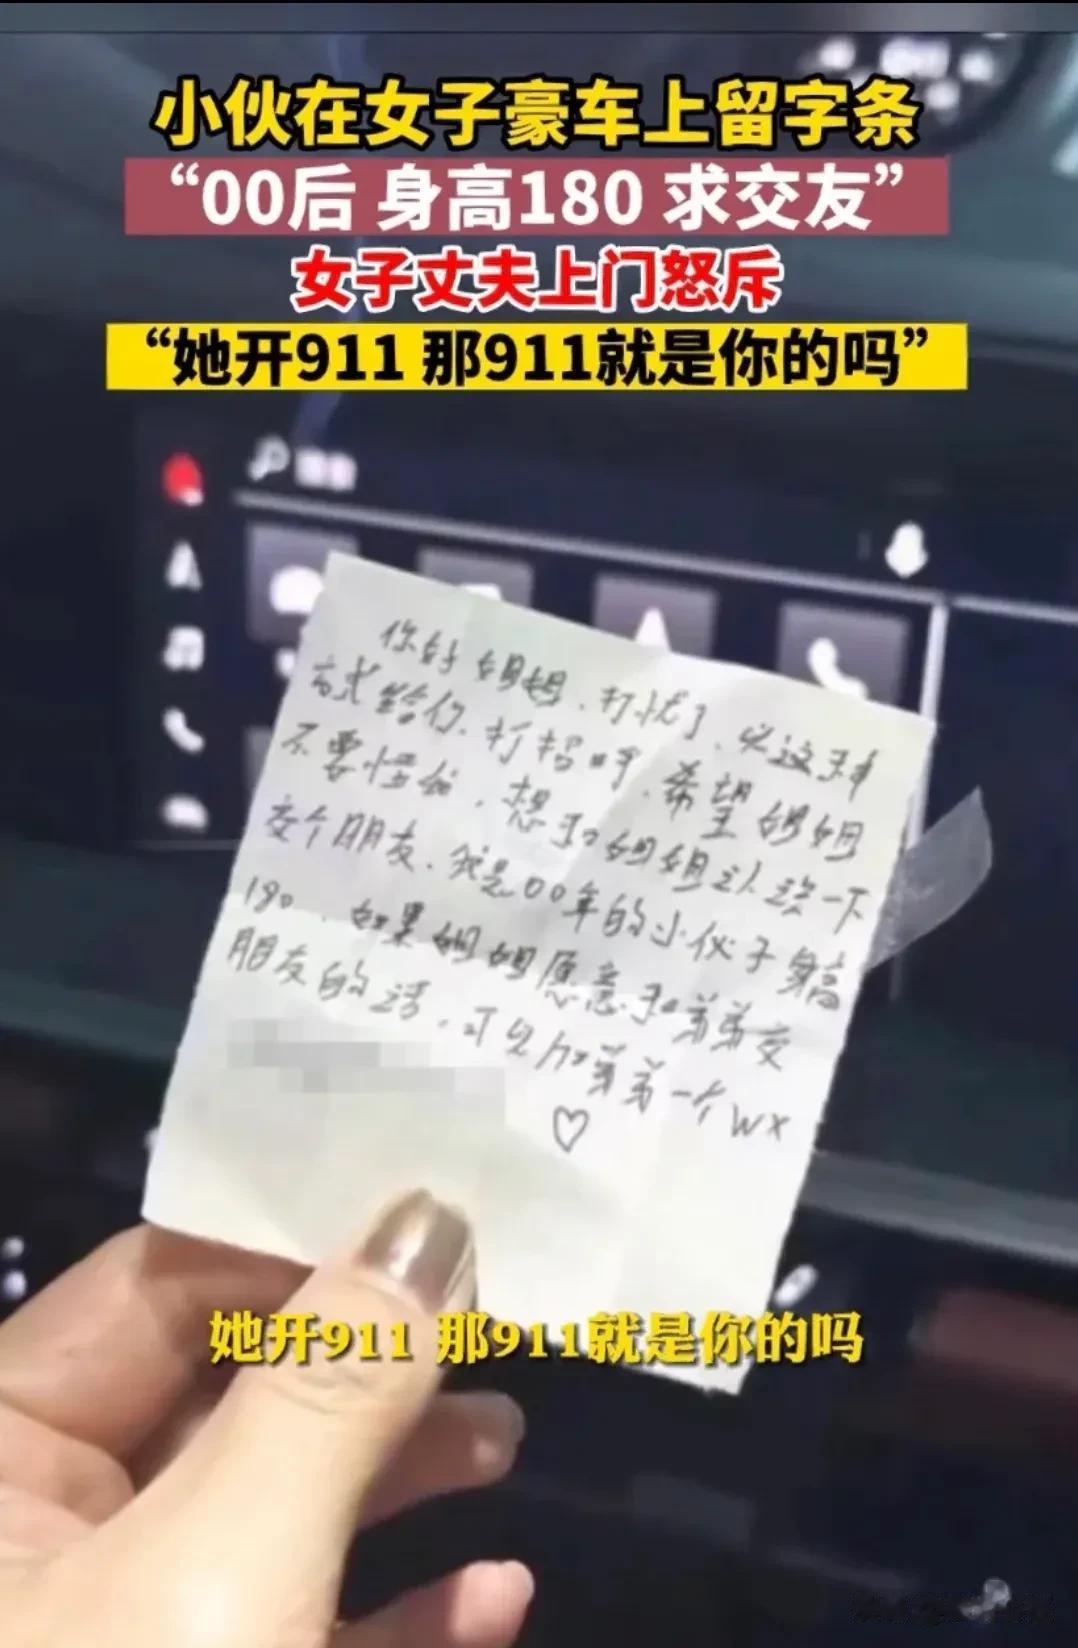 小伙在女子豪车上留字条
“00后 身高180 求交友”
女子丈夫上门怒斥
“她开911 那911就是你的吗”
你好姐姐、打扰了、以这种
方式给你.打招呼.希望姐姐
不要怪我.想和姐姐认识一下
交个朋友.我是00年的小伙子身高
180.如果姐姐愿意和弟弟交
朋友的话.可以加弟弟一个wx
♡
她开911 那911就是你的吗